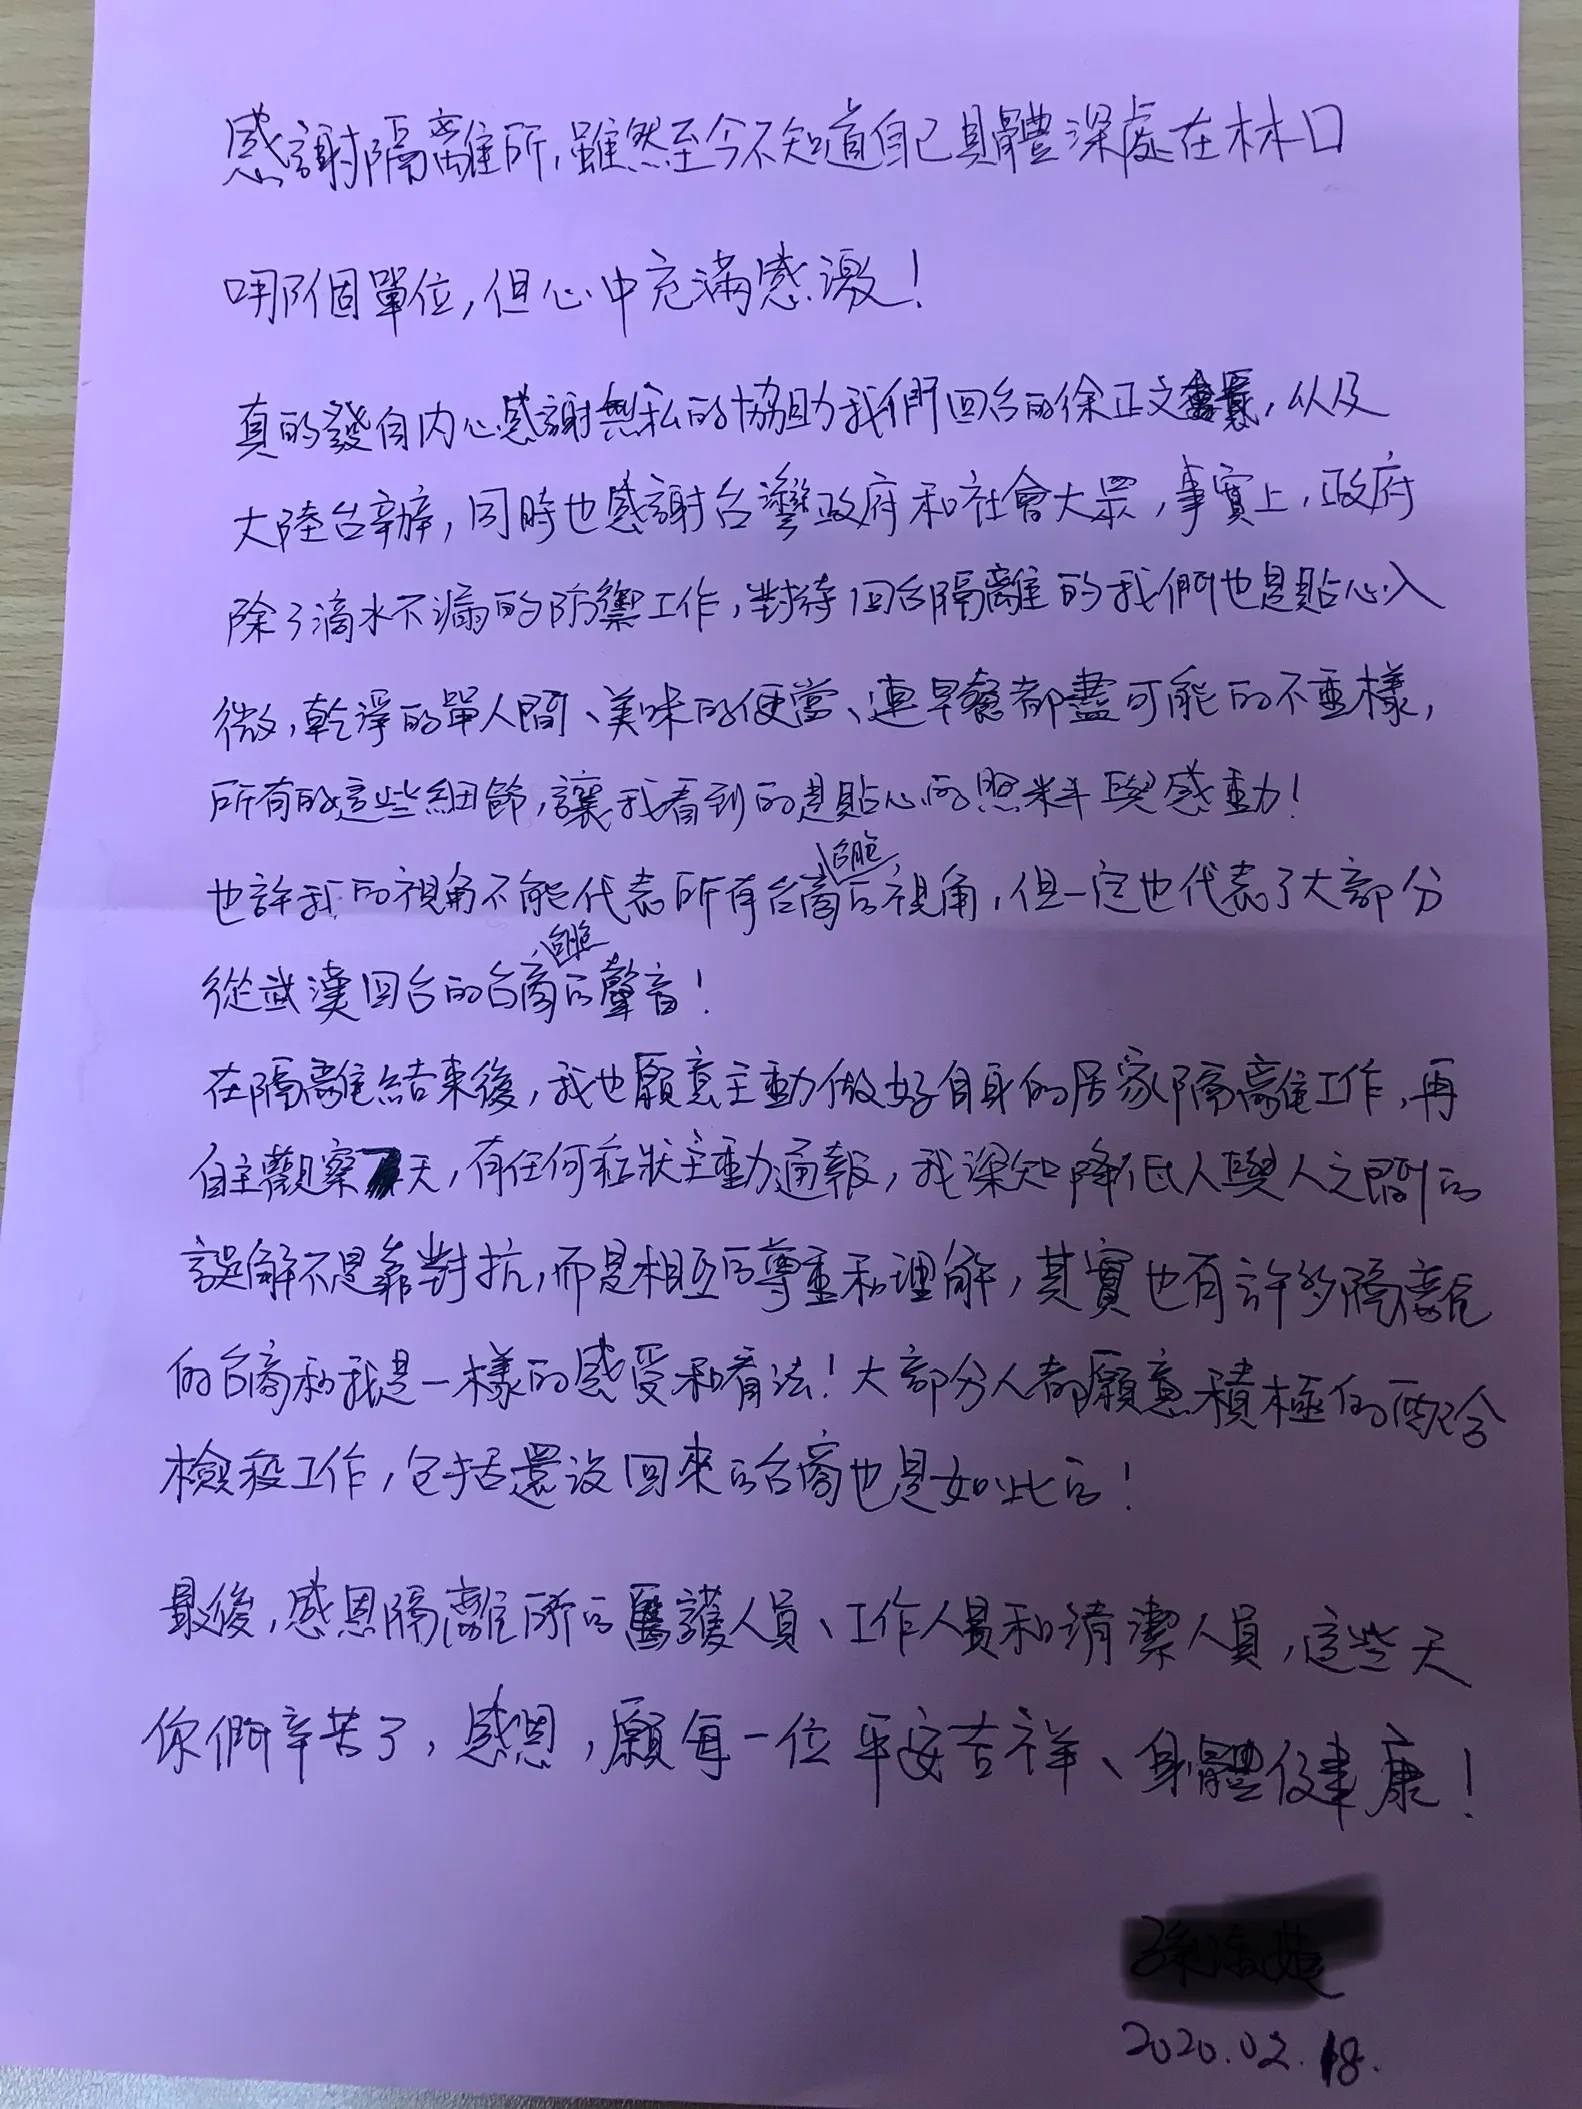 感謝隔離所,雖然至今不知道自己具體深處在林口
哪個單位,但心中充滿感激!
真的發自內心感謝無私的協助我們回台的徐正文,以及
大陸台辦,同時也感謝台灣政府和社會大眾,事實上,政府
除了滴水不漏的防禦工作,對待回台隔離的我們也是貼心入
微,乾淨的單人間、美味的便當、連早餐都盡可能的不重樣,
所有的這些細節,讓我看到的是貼心的照料與感動!
台胞
也許我的視角不能代表所有台商的視角,但一定也代表了大部分
台胞
從武漢回台的台商的聲音!
在隔離結束後,我也願意主動做好自身的居家隔離工作,再
自主觀察天,有任何症狀主動通報,我深知降低人與人之間的
誤解不是靠對抗,而是相互的尊重和理解,其實也有許多隔離
的台商和我是一樣的感受和看法!大部分人都願意積極的配合
檢疫工作,包括還沒回來的台商也是如此的!
最後,感恩隔離所的醫護人員、工作人員和清潔人員,這些天
你們辛苦了,感恩,願每一位平安吉祥、身體健康!
2020.02.18.